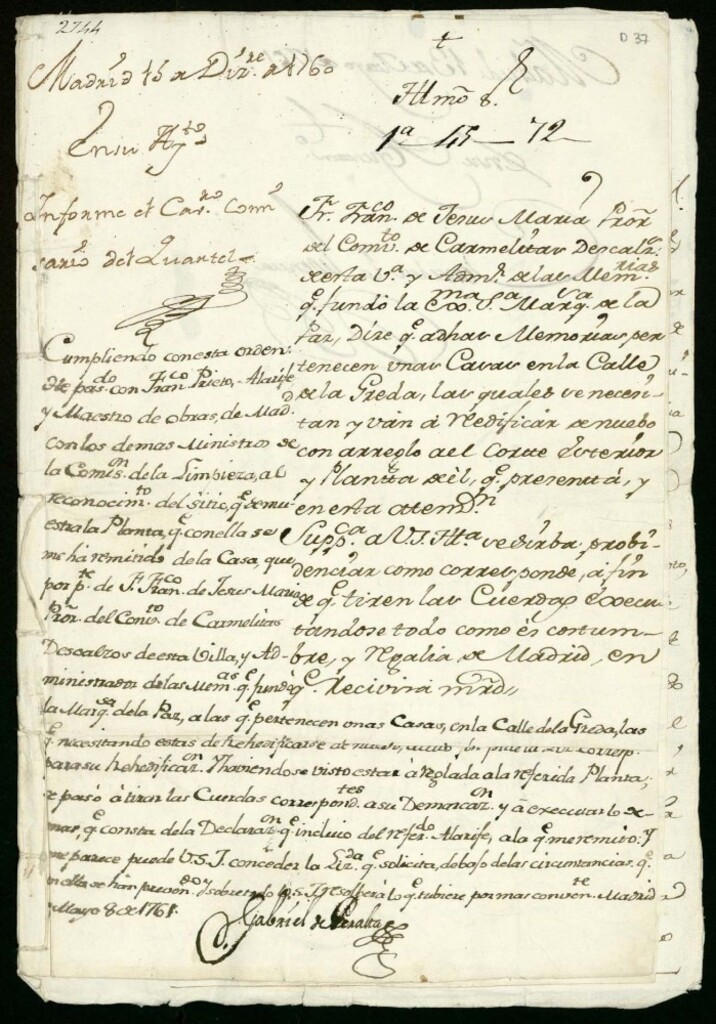 2744
D 37
Madrid 15 a Dizre. a 1760
En su Aytto
Informe el Cavro. Comi
sario del Quartel
+
Illmo. Sr.
1a - 45 - 72
Fr. Franco. de Jesus Maria Pror.
del Convto. de Carmelitas Descalzs.
de esta Va. y Admr. de las Memrias
q. fundó la Exma. Sa. Marqsa. de la
Paz, Dize q. a dhas Memorias per
tenecen unas Casas en la Calle
de la Greda, las quales se necesi
tan y ván á Redificar de nuebo
con arreglo a el Corte Exterior
y Plantta de él, q. presenta, y
en esta atenzn.
Suppca. a V.S. Illa. se sirba probi-
denciar como corresponde, á fin
de q. tiren las Cuerdas execu
tandose todo como és costum-
bre, y Regalia de Madrid, en
q. Recivirá mrd.
Cumpliendo con esta orden
pasé con Franco. Prieto, Alarife
y Maestro de obras, de Mad.
con los demas Ministros de
la Comisn. de la Limpieza, al
reconocimto. del sitio, q. demu
estra la Planta, q. con ella se
me há remitido de la Casa, que
por pte. de Fr. Franco. de Jesus Maria
Pror. del Convto. de Carmelitas
Descalzos de esta Villa, y Ad-
ministrador de las Memas. q. fundó
la Marqsa. de la Paz, a las q. pertenecen unas Casas, en la Calle de la Greda, las
q. necesitando estas de Rehedificarse de nuevo,
para su Rehedificazn. Y haviendose visto estár árreglada a la referida Planta,
se pasó á tirar las Cuerdas correspondtes. a su Demarcazn. y á executar lo de-
mas, q. consta de la Declarazn. q. incluio del referdo. Alarife, a la q. me remito: Y
me parece puede V.S.I. conceder la Lizda. q. solicita, debajo de las circunstancias, q.
en ella se hán prevendo. y sobre todo V.S.I. resolverá lo q. tubiere por mas convente. Madrid
y Mayo 8 de 1761.
Gabriel de Peralta